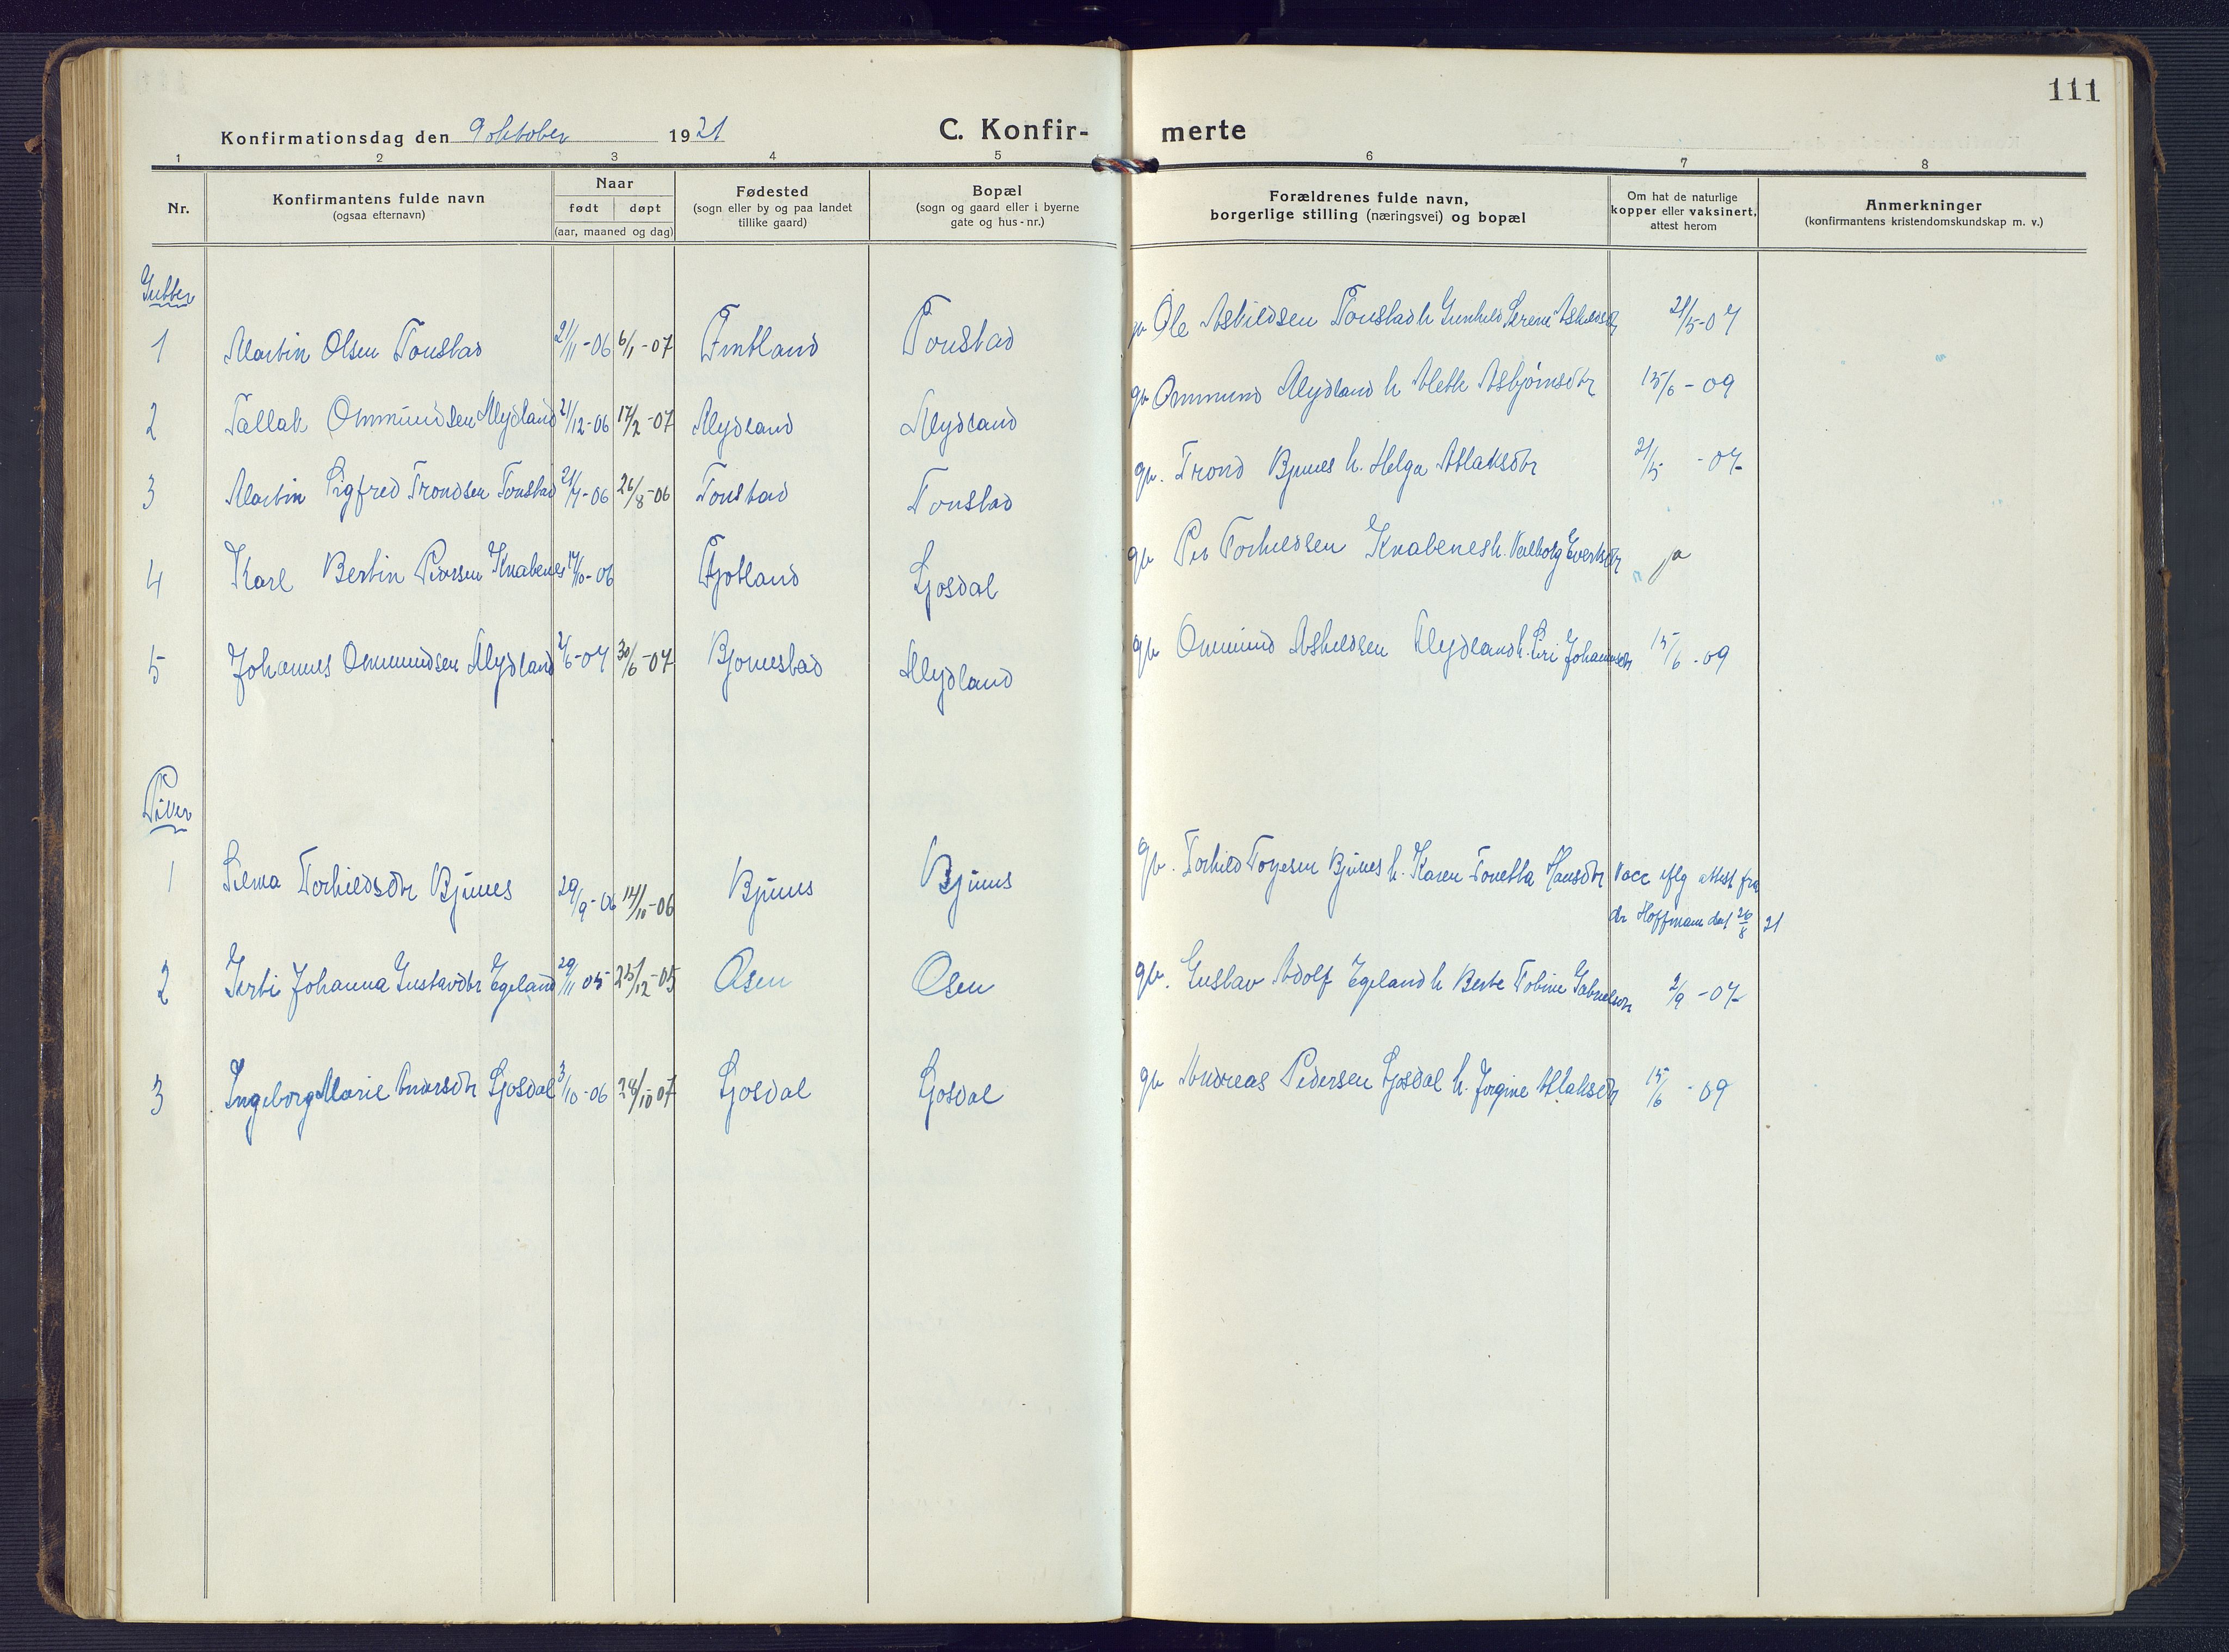 111
Konfirmationsdag den 9 oktober 1921
C. Konfir- merte
1 2 3 4 5 6 7 8
Nr.
Konfirmantens fulde navn
(ogsaa efternavn)
Naar
født døpt
(aar, maaned og dag)
Fødested
(sogn eller by og paa landet
tillike gaard)
Bopæl
(sogn og gaard eller i byerne
gate og hus-nr.)
Forældrenes fulde navn,
borgerlige stilling (næringsvei) og bopæl
Om hat de naturlige
kopper eller vaksinert,
attest herom
Anmerkninger
(konfirmantens kristendomskundskap m. v.)
Gutter
1 Martin Olsen Tonstad 21/11-06 6/1-07 Fintland Tonstad Ole Askildsen Tonstad h Gunhild Serene 21/5-07
2 Tallak Ommundsen Mydland 21/12-06 17/2-07 Mydland Mydland gb Ommund Mydland h Asbjørnsdtr 15/6-09
3 Martin Sigfred Trondsen Tonstad 21/7-06 26/8-06 Tonstad Tonstad gb. Trond Bjunes h. Helga Atlaksdtr 21/5-07
4 Karl Bertin Knabenes 06 Fjotland Gjosdal gb Per Torkildsen Knabenes h. Valborg ja
5 Johannes Ommundsen Mydland 2/6-07 30/6-07 Bjornestad Mydland gb Ommund Askildsen Mydland h. Siri 15/6-09
Piker
1 Selma Torkildsdtr Bjunes 29/9-06 14/10-06 Bjunes Bjunes gb. Torkild Bjunes h. Karen Tonetta Hansdtr Vacc iflg attest fra
dr Hoffmann dat 26/8 21
2 Gerti Johanna Gustavdtr Egeland 29/11 05 25/12-05 Osen Osen gb. Gustav Adolf Egeland h Berte Tobine 2/9-07
3 Ingeborg Marie Gjosdal 3/10-06 28/10-07 Gjosdal Gjosdal gb Andreas Pedersen Gjosdal h. Jorgine Atlaksdtr 15/6-09